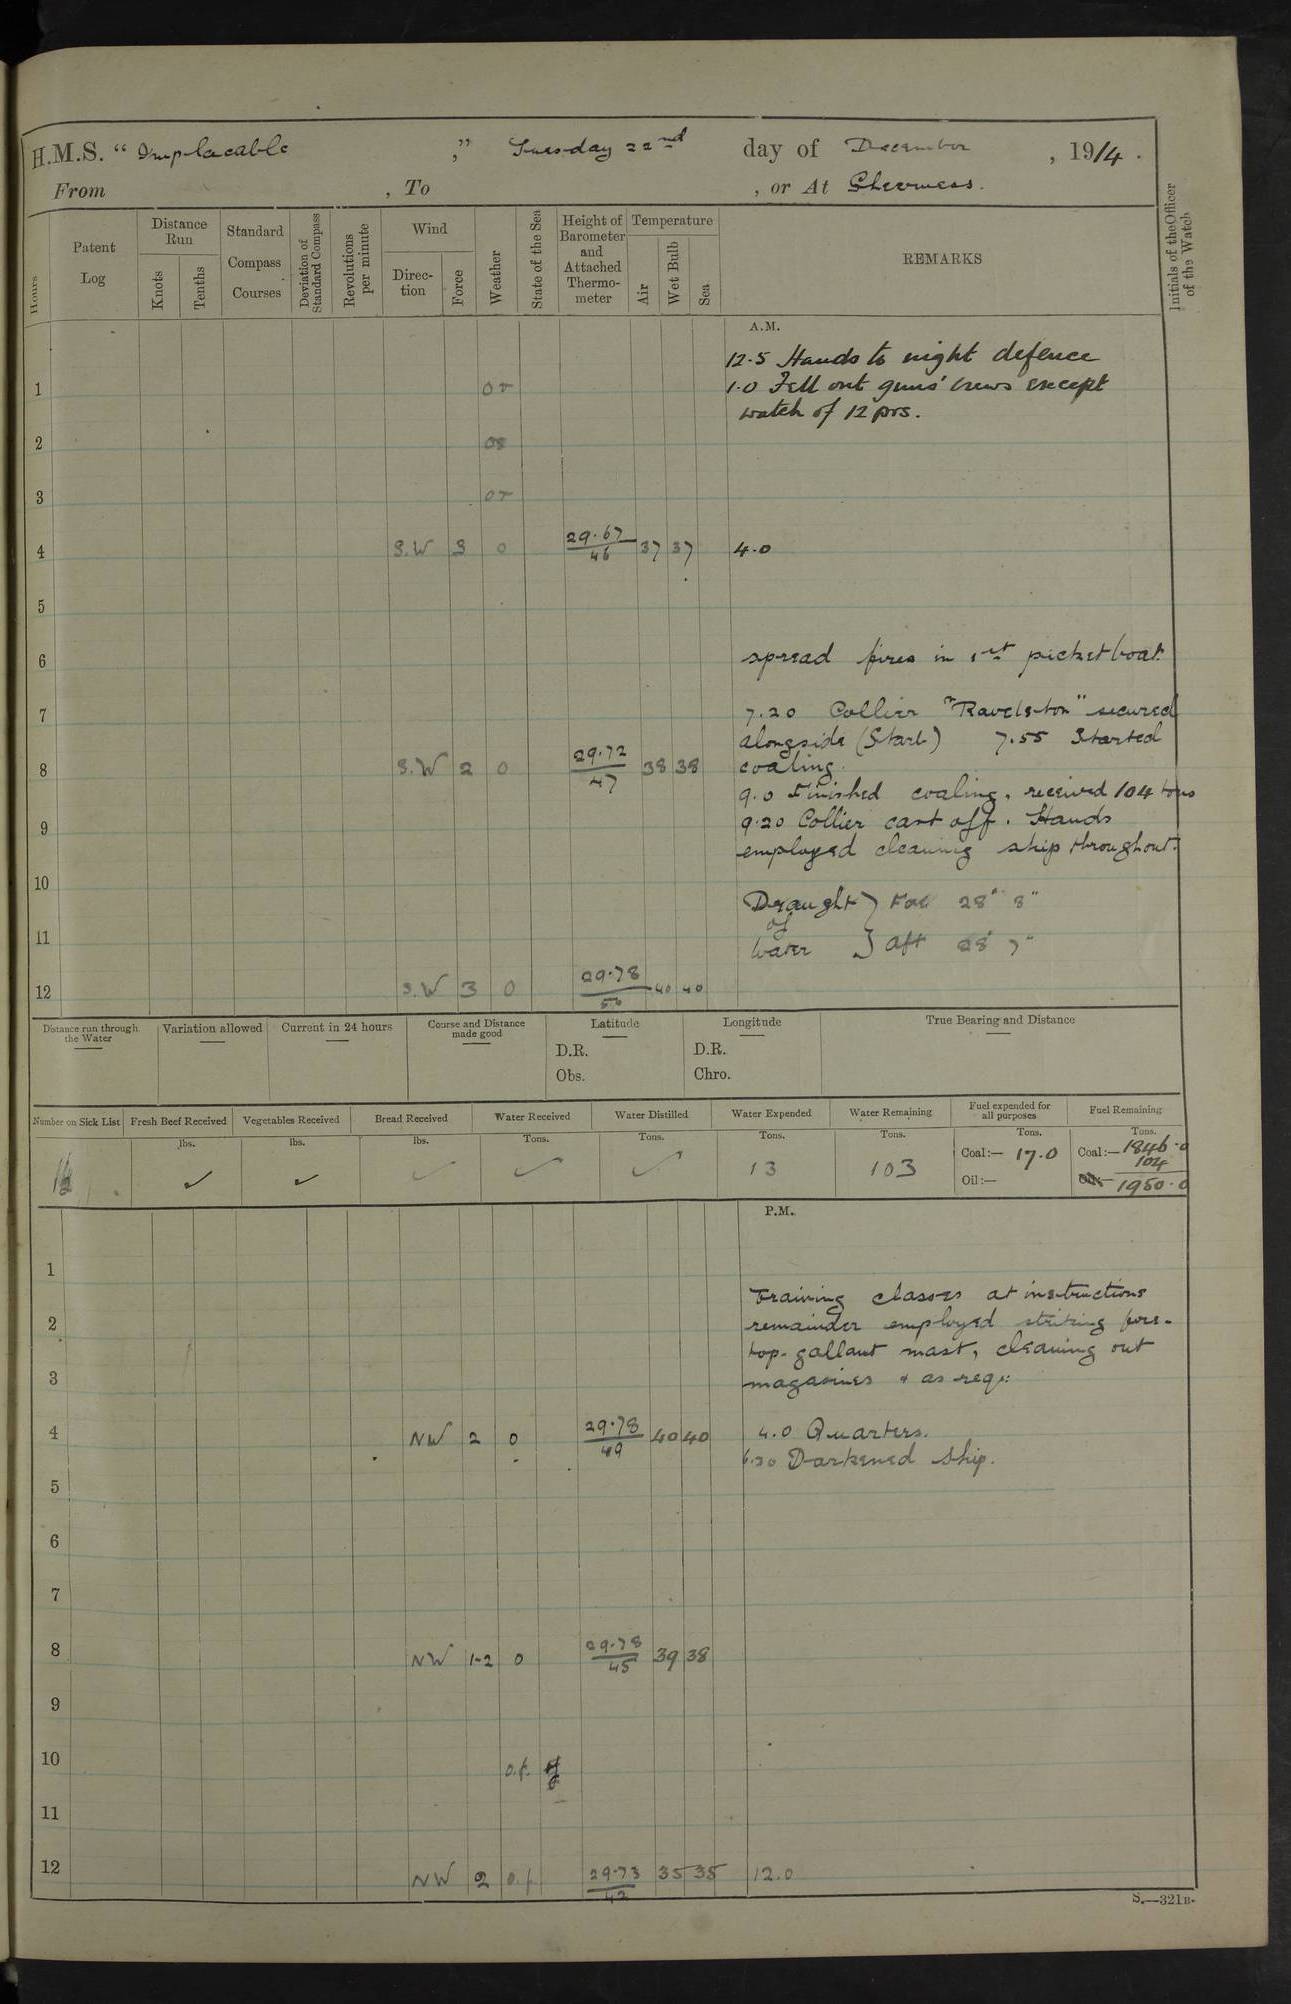 H.M.S. “ Implacable ,” Tuesday 22nd day of December , 1914 .
From , To , or At Sheerness.
Hours
Patent Log
Distance Run
Knots
Tenths
Standard Compass Courses
Deviation of Standard Compass
Revolutions per minute
Wind
Direc-tion
Force
Weather
State of the Sea
Height of Barometer and Attached Thermo-meter
Temperature
Air
Wet Bulb
Sea
REMARKS
Initials of the Officer of the Watch
A.M.
12.5 Hands to night defence
1 or 1.0 Fell out guns' crews except
watch of 12 prs.
2 os
3 or
4 S.W 3 0 29.67 46 37 37 4.0
5
6 spread fires in 1st picket boat.
7 7.20 Collier "Ravelston" secured
alongside (Starb) 7.55 Started
8 S.W 2 0 29.72 47 38 38 coaling.
9.0 Finished coaling, received 104 tons
9 9.20 Collier cast off. Hands
employed cleaning ship throughout.
10 Draught of water } For 28' 8"
11 aft 28' 7"
12 S.W 3 0 29.78 50 40 40
Distance run through the Water
Variation allowed
Current in 24 hours
Course and Distance made good
Latitude
D.R.
Obs.
Longitude
D.R.
Chro.
True Bearing and Distance
Number on Sick List
Fresh Beef Received
Vegetables Received
Bread Received
Water Received
Water Distilled
Water Expended
Water Remaining
Fuel expended for all purposes
Fuel Remaining
lbs. lbs. lbs. Tons. Tons. Tons. Tons. Tons. Tons.
✓ ✓ ✓ ✓ ✓ 13 103
Coal:— 17.0
Oil:—
Coal:— 1846.0
104
Oil:— 1950.0
P.M.
1
Training classes at instructions
2 remainder employed striking fore-
top-gallant mast, cleaning out
3 magazines & as req:
4 NW 2 0 29.78 49 40 40 4.0 Quarters.
6.30 Darkened ship.
5
6
7
8 NW 1-2 0 29.78 45 39 38
9
10 o.f.
11
12 NW 2 o.f. 29.73 42 35 35 12.0
S.—321B.